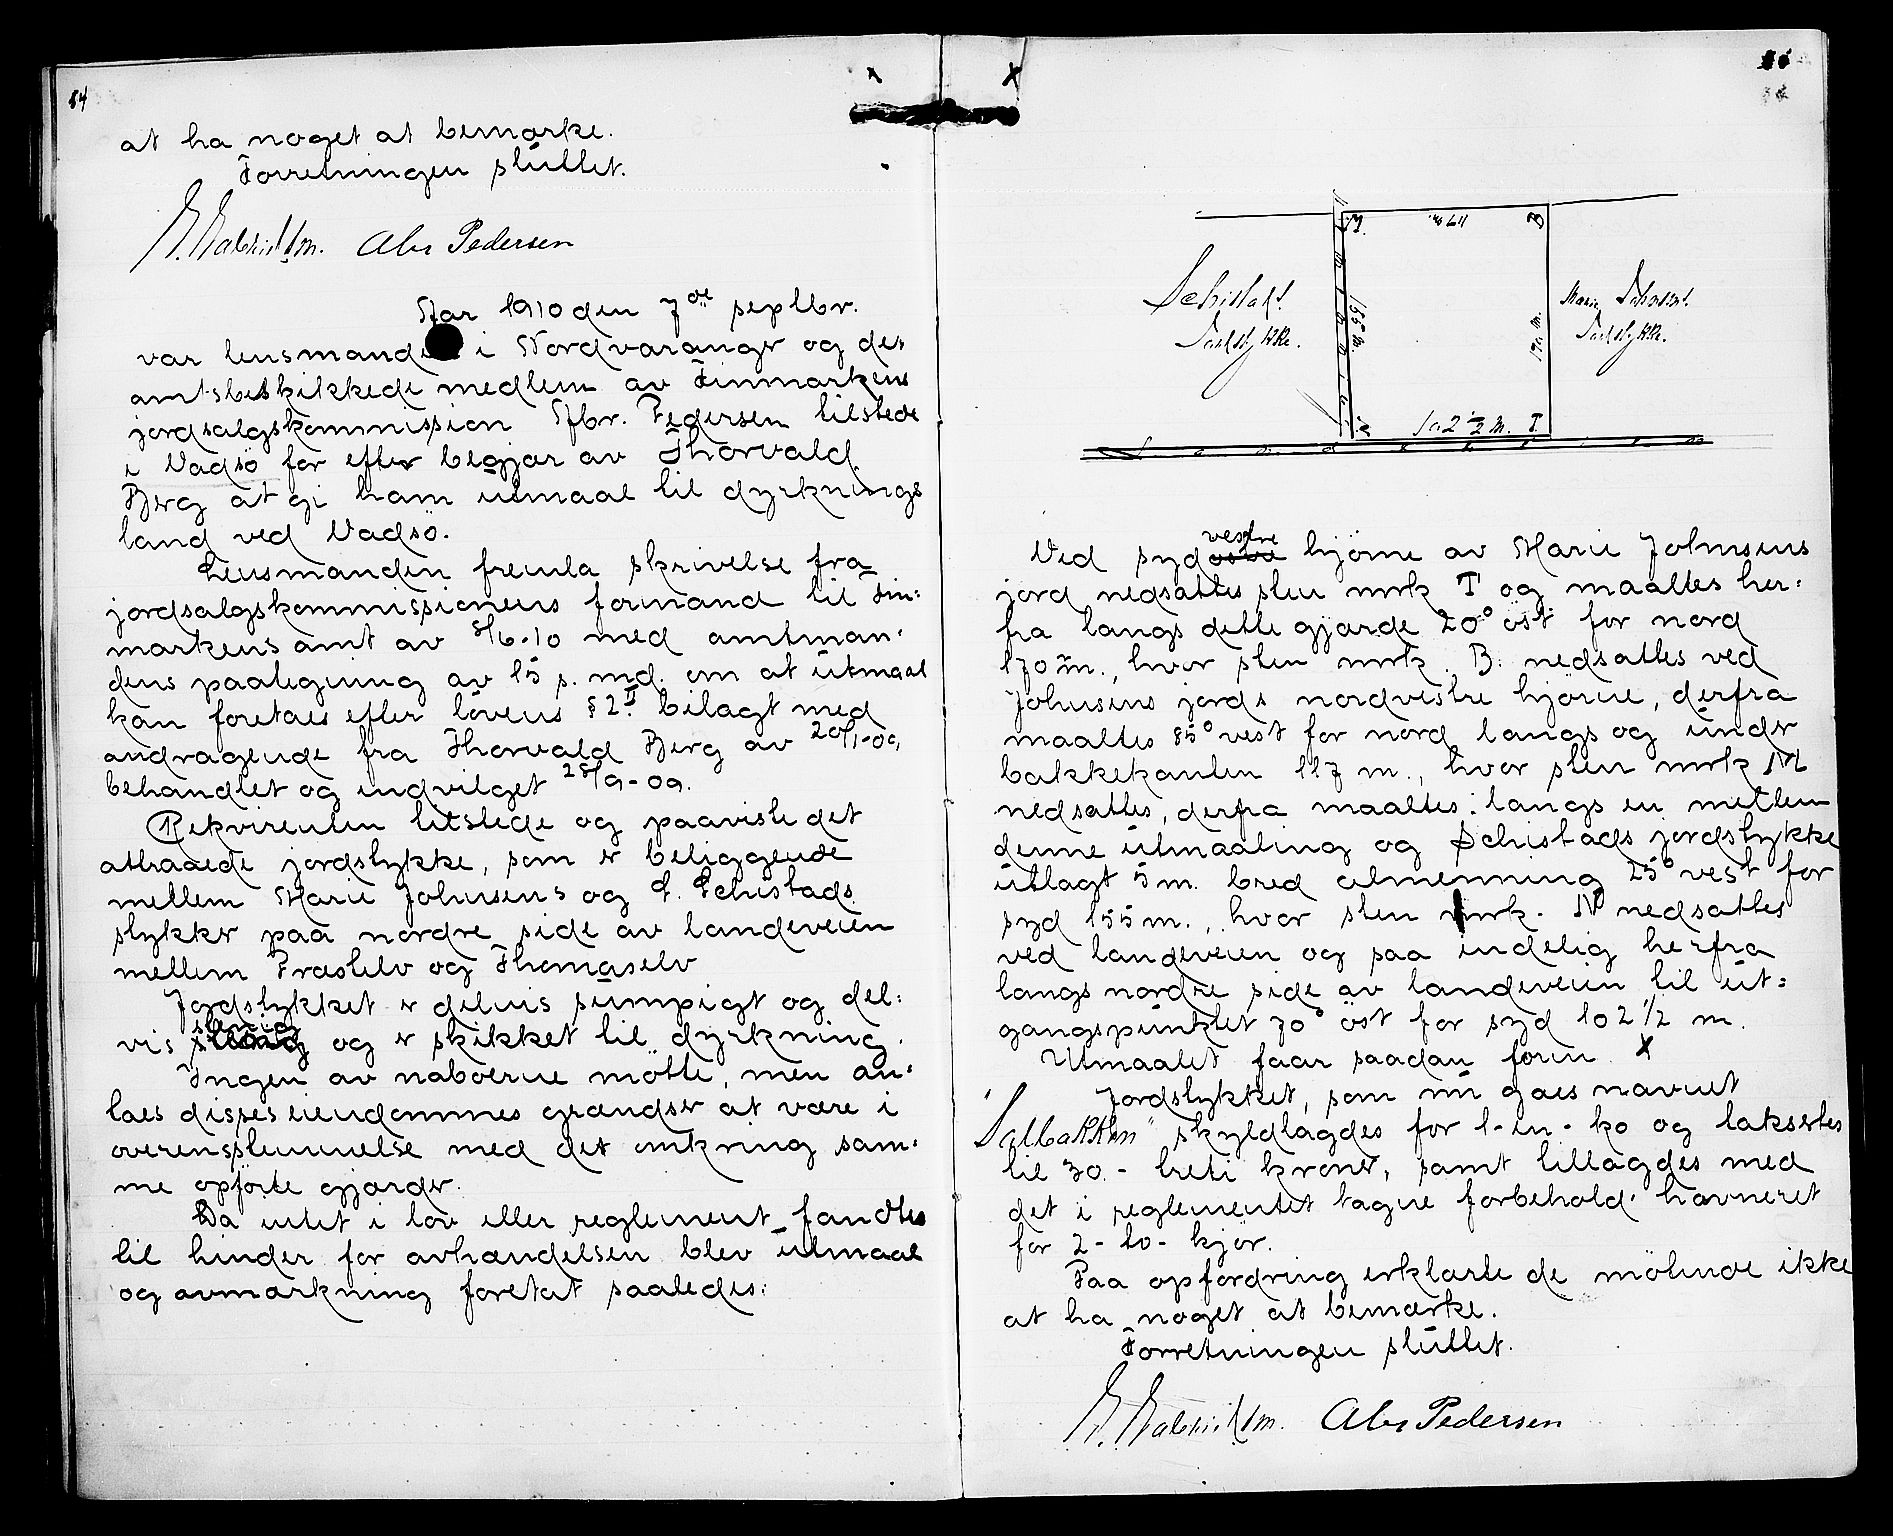 84
at ha noget at bemærke.
Forretningen sluttet.
Abr Pedersen
Aar 1910 den 7de septbr.
var lensmanden i Nordvaranger og det
amtsbeskikkede medlem av Finmarkens
jordsalgskommission Abr. Pedersen tilstede
i Vadsö for efter begjær av Thorvald
Berg at gi ham utmaal til dyrknings
land ved Vadsö.
Lensmanden fremla skrivelse fra
jordsalgskommissionens formand til Fin-
markens amt av 8/6-10 med amtman-
dens paategning av 15 s. md. om at utmaal
kan foretaes efter lovens § 2 I. bilagt med
andragende fra Thorvald Berg av 20/1-09,
behandlet og indvilget 28/9-09.
Rekvirenten tilstede og paaviste det
attraaede jordstykke, som er beliggende
mellem Marie Johnsens og S. Schistads
stykker paa nordre side av landeveien
mellem Præstelv og Thomaselv
Jordstykket er delvis sumpigt og del:
vis stenig og er skikket til dyrkning.
Ingen av naboerne mötte, men an-
taes disses eiendommes grændser at være i
overensstemmelse med det omkring sam-
me opförte gjærder.
Da intet i lov eller reglement fandtes
til hinder for avhændelsen blev utmaal
og avmarkning foretat saaledes:
M. 117 m. B
Schistads
Jordstykke.
155 m.
170 m.
Marie Johnsens
Jordstykke.
N. 102 1/2 m. T.
Landevei
Ved sydvestre hjörne av Marie Johnsens
jord nedsattes sten mrk T og maaltes her-
fra langs dette gjærde 20° öst for nord
170 m., hvor sten mrk. B. nedsattes ved
Johnsens jords nordvestre hjörne, derfra
maaltes 85° vest for nord langs og under
bakkekanten 117 m., hvor sten mrk M
nedsattes, derfra maaltes: langs en mellem
denne utmaaling og Schistads jordstykke
utlagt 5 m. bred almenning 25° vest for
syd 155 m., hvor sten mrk. N nedsattes
ved landeveien og saa endelig herfra
langs nordre side av landeveien til ut-
gangspunktet 70° öst for syd 102 1/2 m.
Utmaalet faar saadan form X
Jordstykket, som nu gaes navnet
"Solbakken" skyldlagdes for 1- en - ko og taksertes
til 30.- treti kroner, samt tillagdes med
det i reglementet tagne forbehold havneret
for 2 - to - kjör.
Paa opfordring erklærte de mötende ikke
at ha noget at bemærke.
Forretningen sluttet.
Abr Pedersen